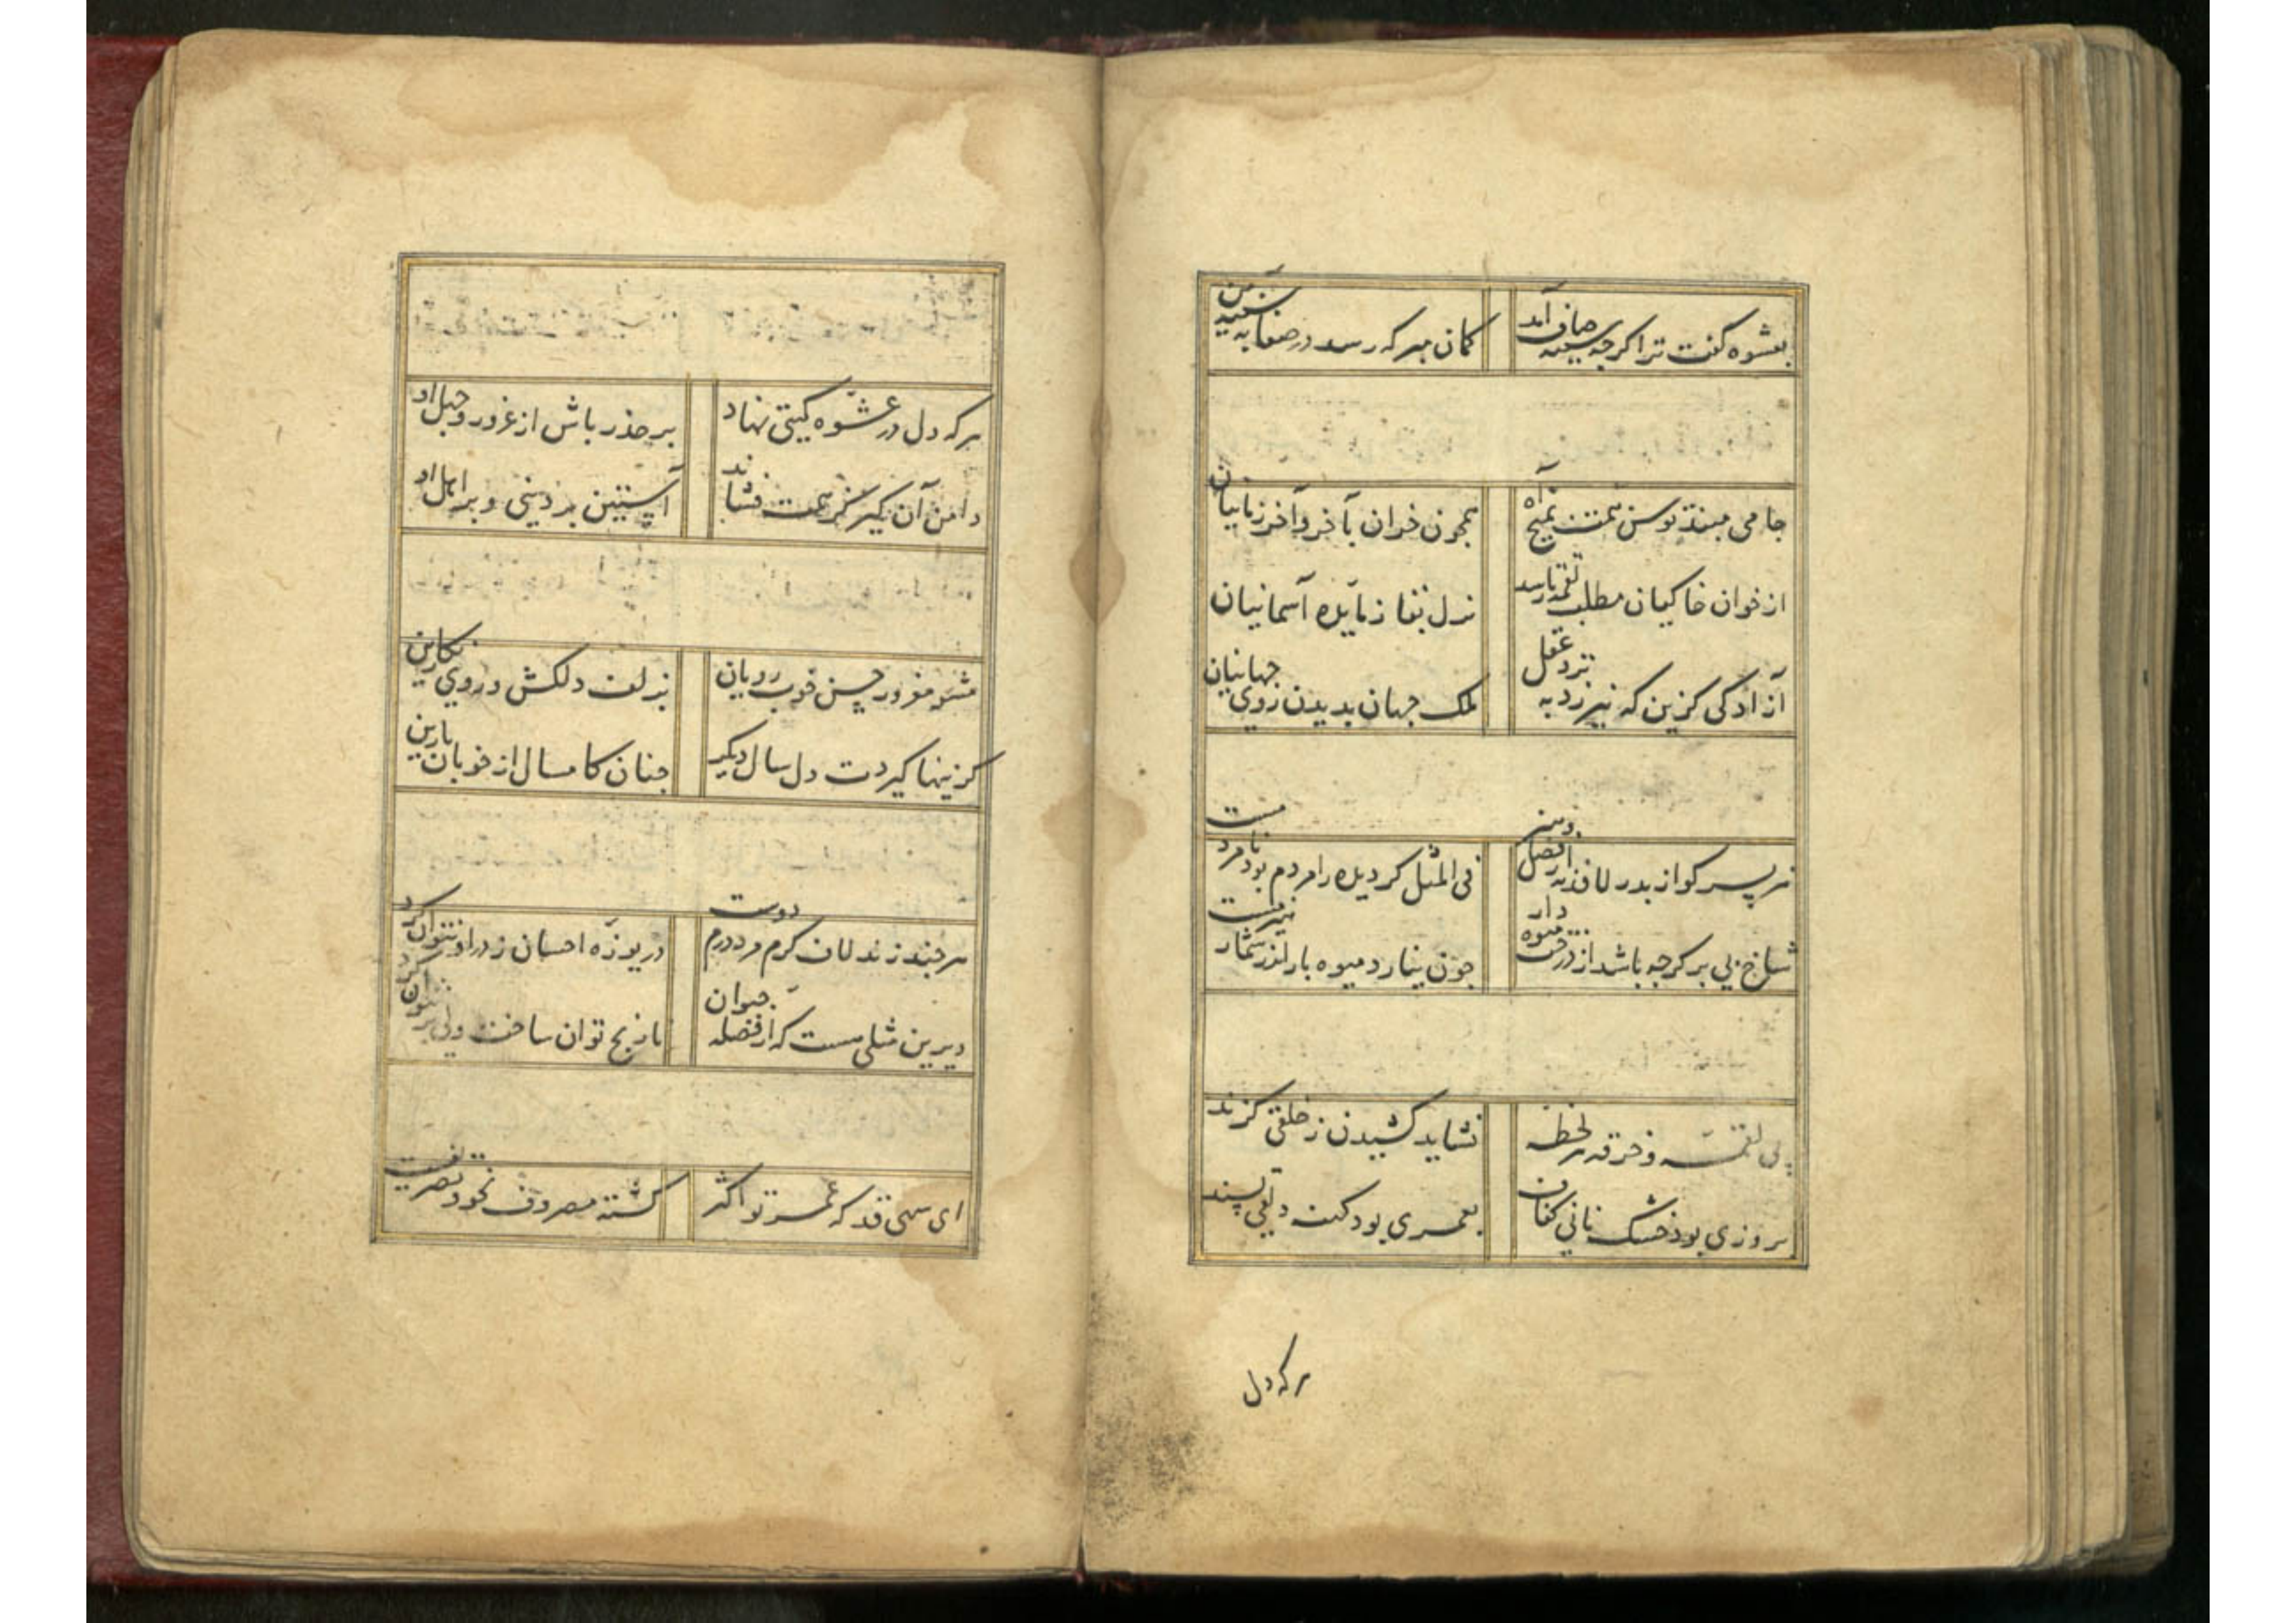 بعشوه گفت ترا گرچه سینه صاف آمد
گمان مبر که رسد در صفا به سینه من
جامی مبند توسن همت
همچون خران بآخر و آخر زمانیان
از خوان خاکیان مطلب لقمه تا رسد
نزل بقا ز مایده آسمانیان
آزادگی گزین که نیرزد به نزد عقل
ملک جهان بدیدن روی جهانیان
هر پسر کو از پدر لافد نه از فضل و هنر
فی المثل گر دیده را مردم بود نامردمست
شاخ بی بر گرچه باشد از درخت میوه دار
چون نیارد میوه بار اندر شمار هیزمست
پی لقمه و خرقه هر لحظه
نشاید کشیدن ز خلقی گزند
بروزی بود خشک نانی کفاف
بعمری بود کهنه دلقی پسند
هر که دل
هر که دل در عشوه گیتی نهاد
برحذر باش از غرور و جهل او
دامن آن گیر کز همت فشاند
آستین بر دینی و بر اهل او
مشو مغرور حسن خوب رویان
بزلف دلکش و روی نگارین
کزینها گیردت دل سال دیگر
چنان کامسال از خوبان پارین
هر چند زند لاف کرم مرد درم دوست
دریوزه احسان ز در او نتوان کرد
دیرین مثلی هست که از فضله حیوان
نارنج توان ساخت ولی بو نتوان کرد
ای سهی قد که عمر تو اکثر
گشته مصروف نحو و تصریفست